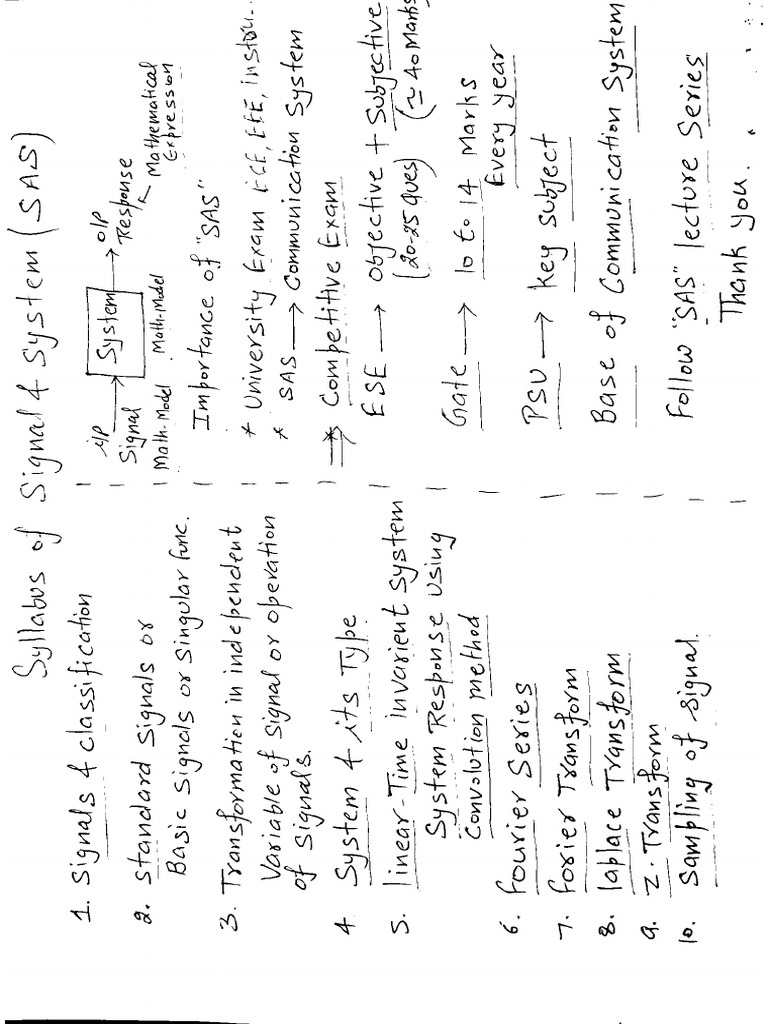 Syllabus of Signal & System (SAS)
1. Signals & classification
2. Standard Signals or
Basic Signals or Singular func.
3. Transformation in independent
Variable of Signal or operation
of Signals.
4 System & its Type
5. linear-Time invarient System
System Response using
Convolution method
6. Fourier Series
7. Forier Transform
8. laplace Transform
9. Z-Transform
10. Sampling of signal
i/p → System → o/p
Signal Response
Math-Model Math-Model Mathematical
Expression
Importance of "SAS"
* University Exam ECE, EEE, Instru..
* SAS → Communication System
⇒ * Competitive Exam
ESE → Objective + Subjective
(20-25 Ques) (≈ 40 Marks)
Gate → 10 to 14 Marks
Every year
PSU → Key Subject
Base of Communication System
Follow "SAS" lecture Series
Thank you.